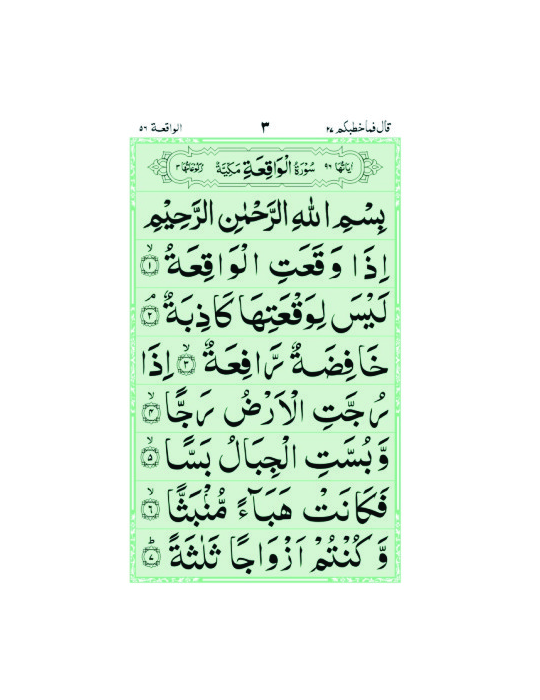 قال فما خطبكم ٢٧ ٣ الواقعة ٥٦
اٰيَاتُهَا ٩٦ سُوْرَةُ الْوَاقِعَةِ مَكِّيَّةٌ رُكُوْعَاتُهَا ٣
بِسْمِ اللّٰهِ الرَّحْمٰنِ الرَّحِيْمِ
اِذَا وَقَعَتِ الْوَاقِعَةُ ۙ﴿١﴾
لَيْسَ لِوَقْعَتِهَا كَاذِبَةٌ ۘ﴿٢﴾
خَافِضَةٌ رَّافِعَةٌ ۙ﴿٣﴾ اِذَا
رُجَّتِ الْاَرْضُ رَجًّا ۙ﴿٤﴾
وَّ بُسَّتِ الْجِبَالُ بَسًّا ۙ﴿٥﴾
فَكَانَتْ هَبَآءً مُّنْۢبَثًّا ۙ﴿٦﴾
وَّ كُنْتُمْ اَزْوَاجًا ثَلٰثَةً ؕ﴿٧﴾